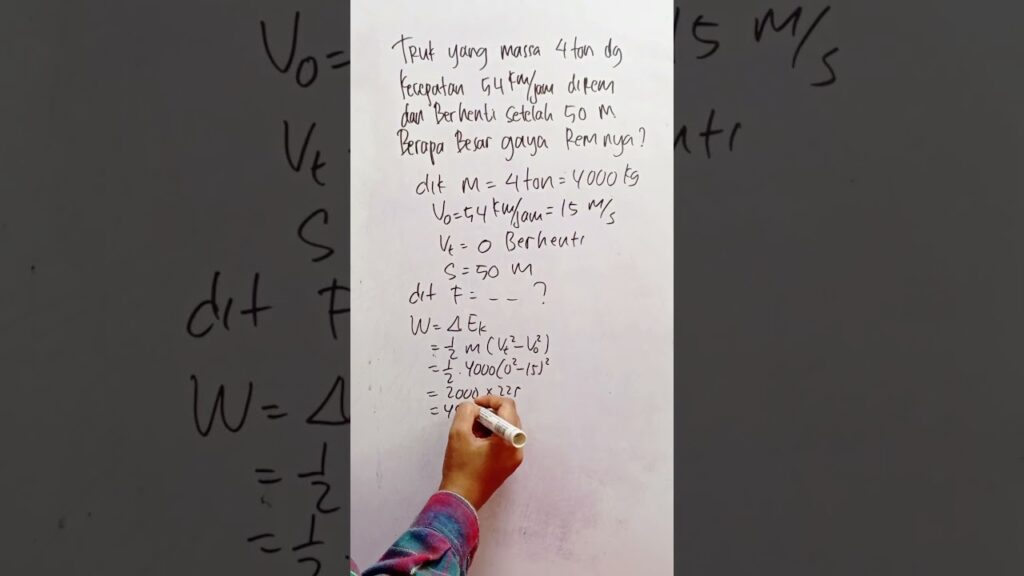 Truk yang massa 4 ton dg
kecepatan 54 km/jam direm
dan Berhenti setelah 50 M
Berapa Besar gaya Remnya?
dik M = 4 ton = 4000 kg
V₀ = 54 km/jam = 15 M/s
Vₜ = 0 Berhenti
S = 50 M
dit F = - - ?
W = Δ Eₖ
= 1/2 m (Vₜ² - V₀²)
= 1/2 . 4000 (0² - 15)²
= 2000 x 225
= 4